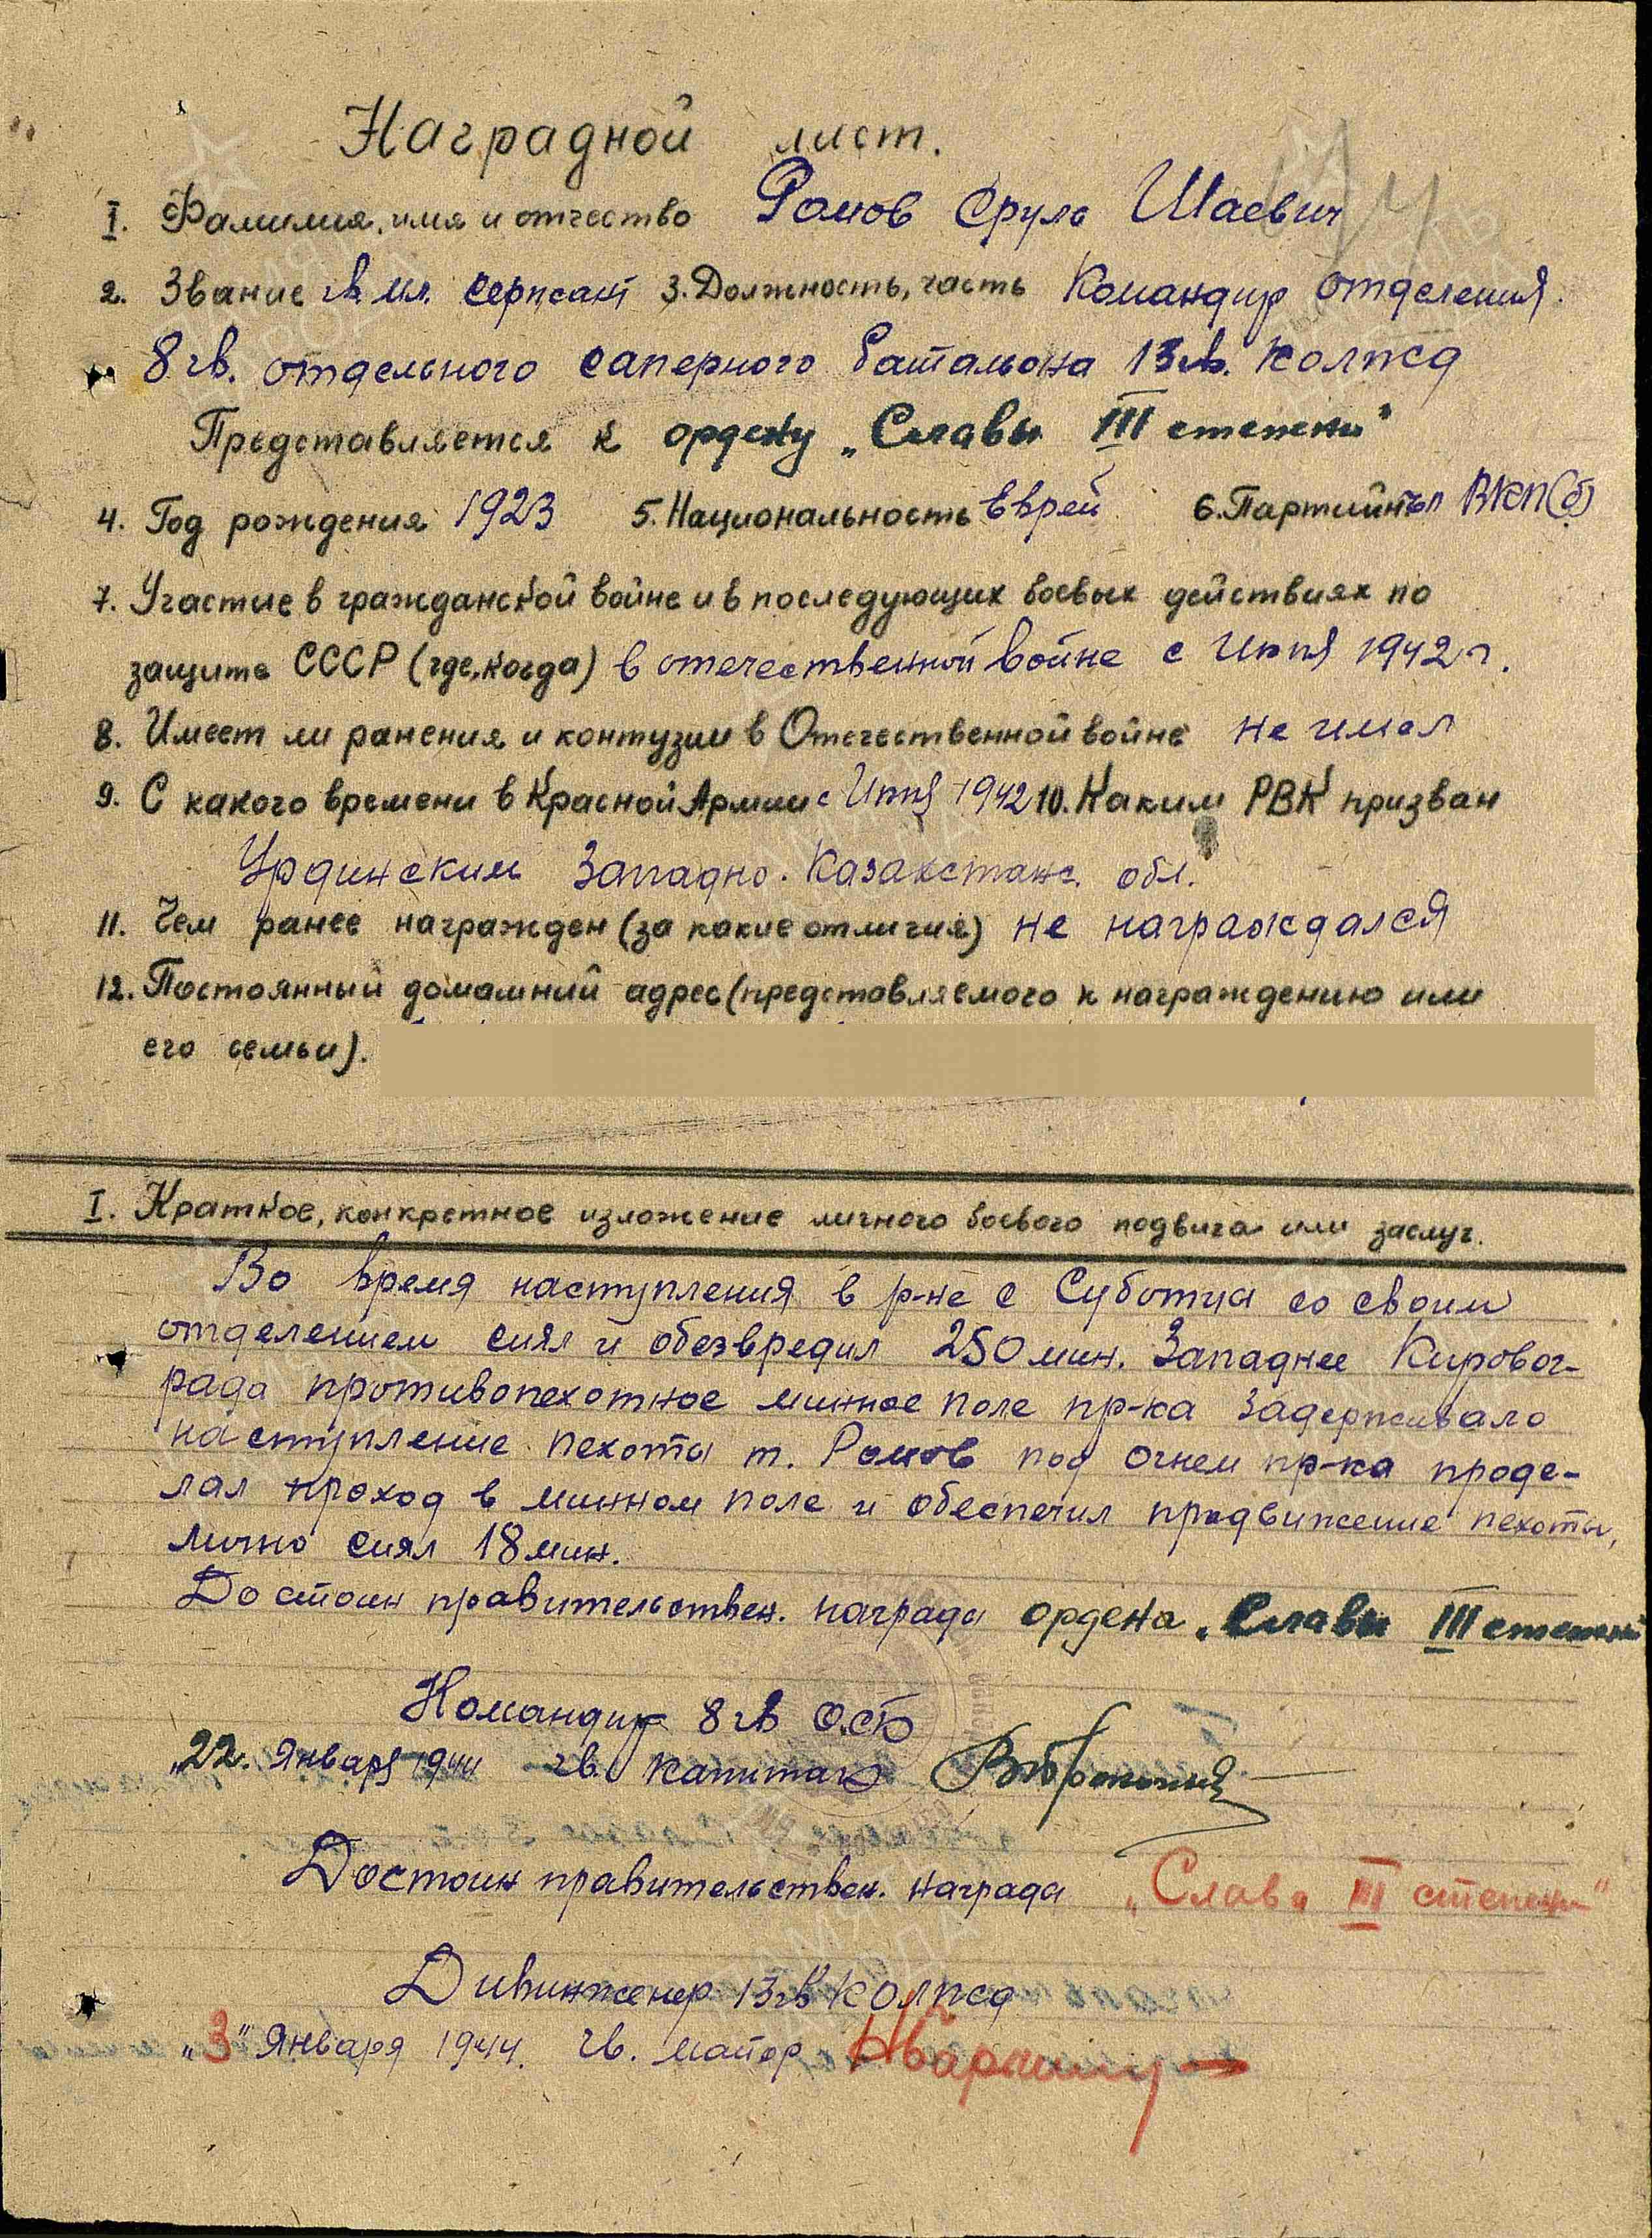 Наградной лист.
I. Фамилия, имя и отчество Ромов Сруль Шаевич
2. Звание гв. мл. сержант 3. Должность, часть Командир отделения
8 гв. отдельного саперного батальона 13 гв. КОЛПКСД
Представляется к ордену „Славы III степени"
4. Год рождения 1923 5. Национальность Еврей 6. Партийн. ВКП(б)
7. Участие в гражданской войне и в последующих боевых действиях по
защите СССР (где, когда) в отечественной войне с Июня 1942 г.
8. Имеет ли ранения и контузии в Отечественной войне не имел
9. С какого времени в Красной Армии с Июня 1942 10. Каким РВК призван
Урдинским Западно-Казахстанс. обл.
11. Чем ранее награжден (за какие отличия) не награждался
12. Постоянный домашний адрес (представляемого к награждению или
его семьи).
I. Краткое, конкретное изложение личного боевого подвига или заслуг.
Во время наступления в р-не с Суботци со своим
отделением снял и обезвредил 250 мин. Западнее Кировог-
рада противопехотное минное поле пр-ка задерживало
наступление пехоты т. Ромов под огнем пр-ка проде-
лал проход в минном поле и обеспечил продвижение пехоты,
лично снял 18 мин.
Достоин правительствен. награды ордена „Славы III степени
Командир 8 гв ОСБ
„22. Января 1944 гв. капитан
Достоин правительствен. награды „Слава III степени"
Дивинженер 13 гв КОЛПКСД
„3" Января 1944. гв. майор